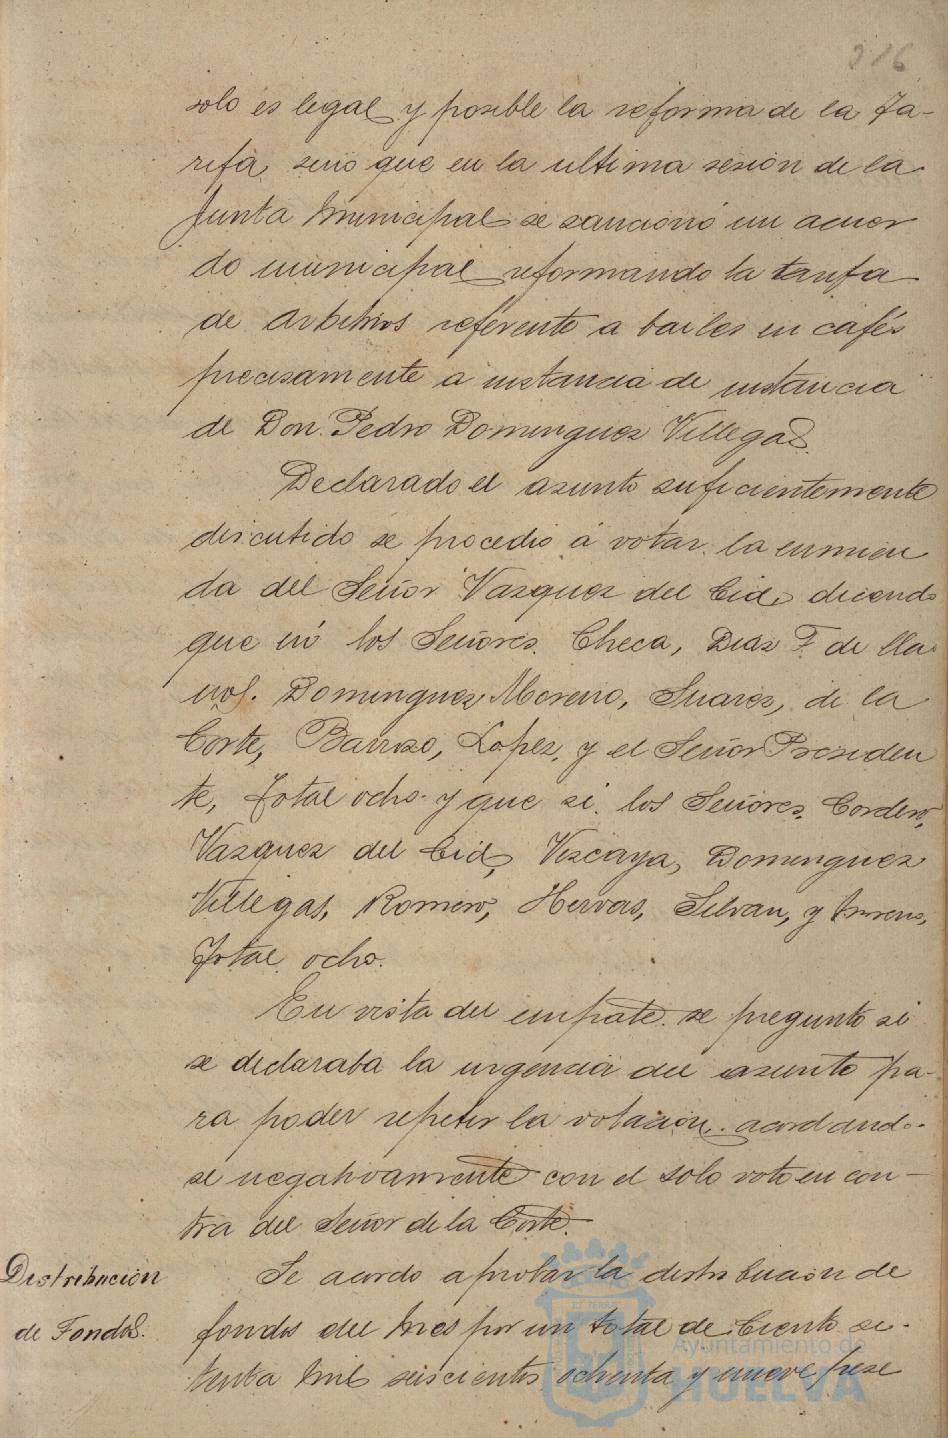 316
solo es legal y posible la reforma de la Ta-
rifa, sino que en la ultima sesion de la
Junta Municipal se sancionó un acuer
do municipal reformando la tarifa
de Arbitrios referente a bailes en cafés
precisamente a instancia de instancia
de Don Pedro Dominguez Villegas.
Declarado el asunto suficientemente
discutido se procedio á votar la enmien
da del Señor Vazquez del Cid, diciendo
que nó los Señores Checa, Diaz F. de lla
nos. Dominguez Moreno, Suarez, de la
Corte, Barroso, Lopez, y el Señor Presiden
te, Total ocho y que si los Señores Cordero,
Vazquez del Cid, Vizcaya, Dominguez
Villegas, Romero, Hervas, Silvan, y Moreno,
Total ocho.
En vista del empate se pregunto si
se declaraba la urgencia del asunto pa-
ra poder repetir la votacion acordando-
se negativamente con el solo voto en con-
tra del Señor de la Corte.
Distribucion
de Fondos.
Se acordo aprobar la distribucion de
fondos del mes por un total de Ciento se-
tenta mil seiscientos ochenta y nueve pese
Ayuntamiento de
HUELVA